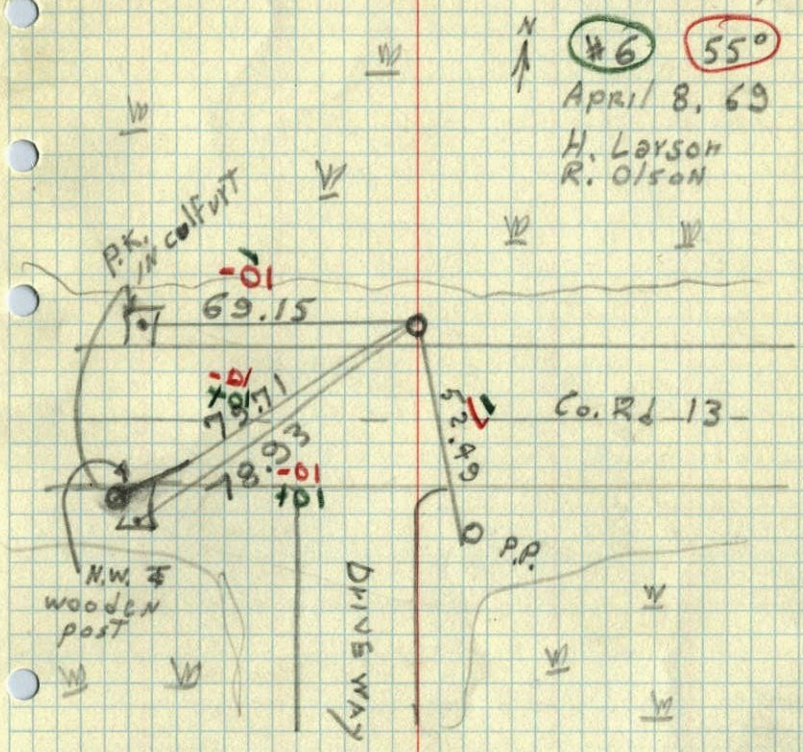 N
#6
55°
April 8, 69
H. Larson
R. Olson
P.K.
IN culfurt
-01
69.15
-01
+01
75.71
78.93
-01
+01
52.49
Co. Rd 13
P.P.
N.W.
wooden
post
DRIVEWAY